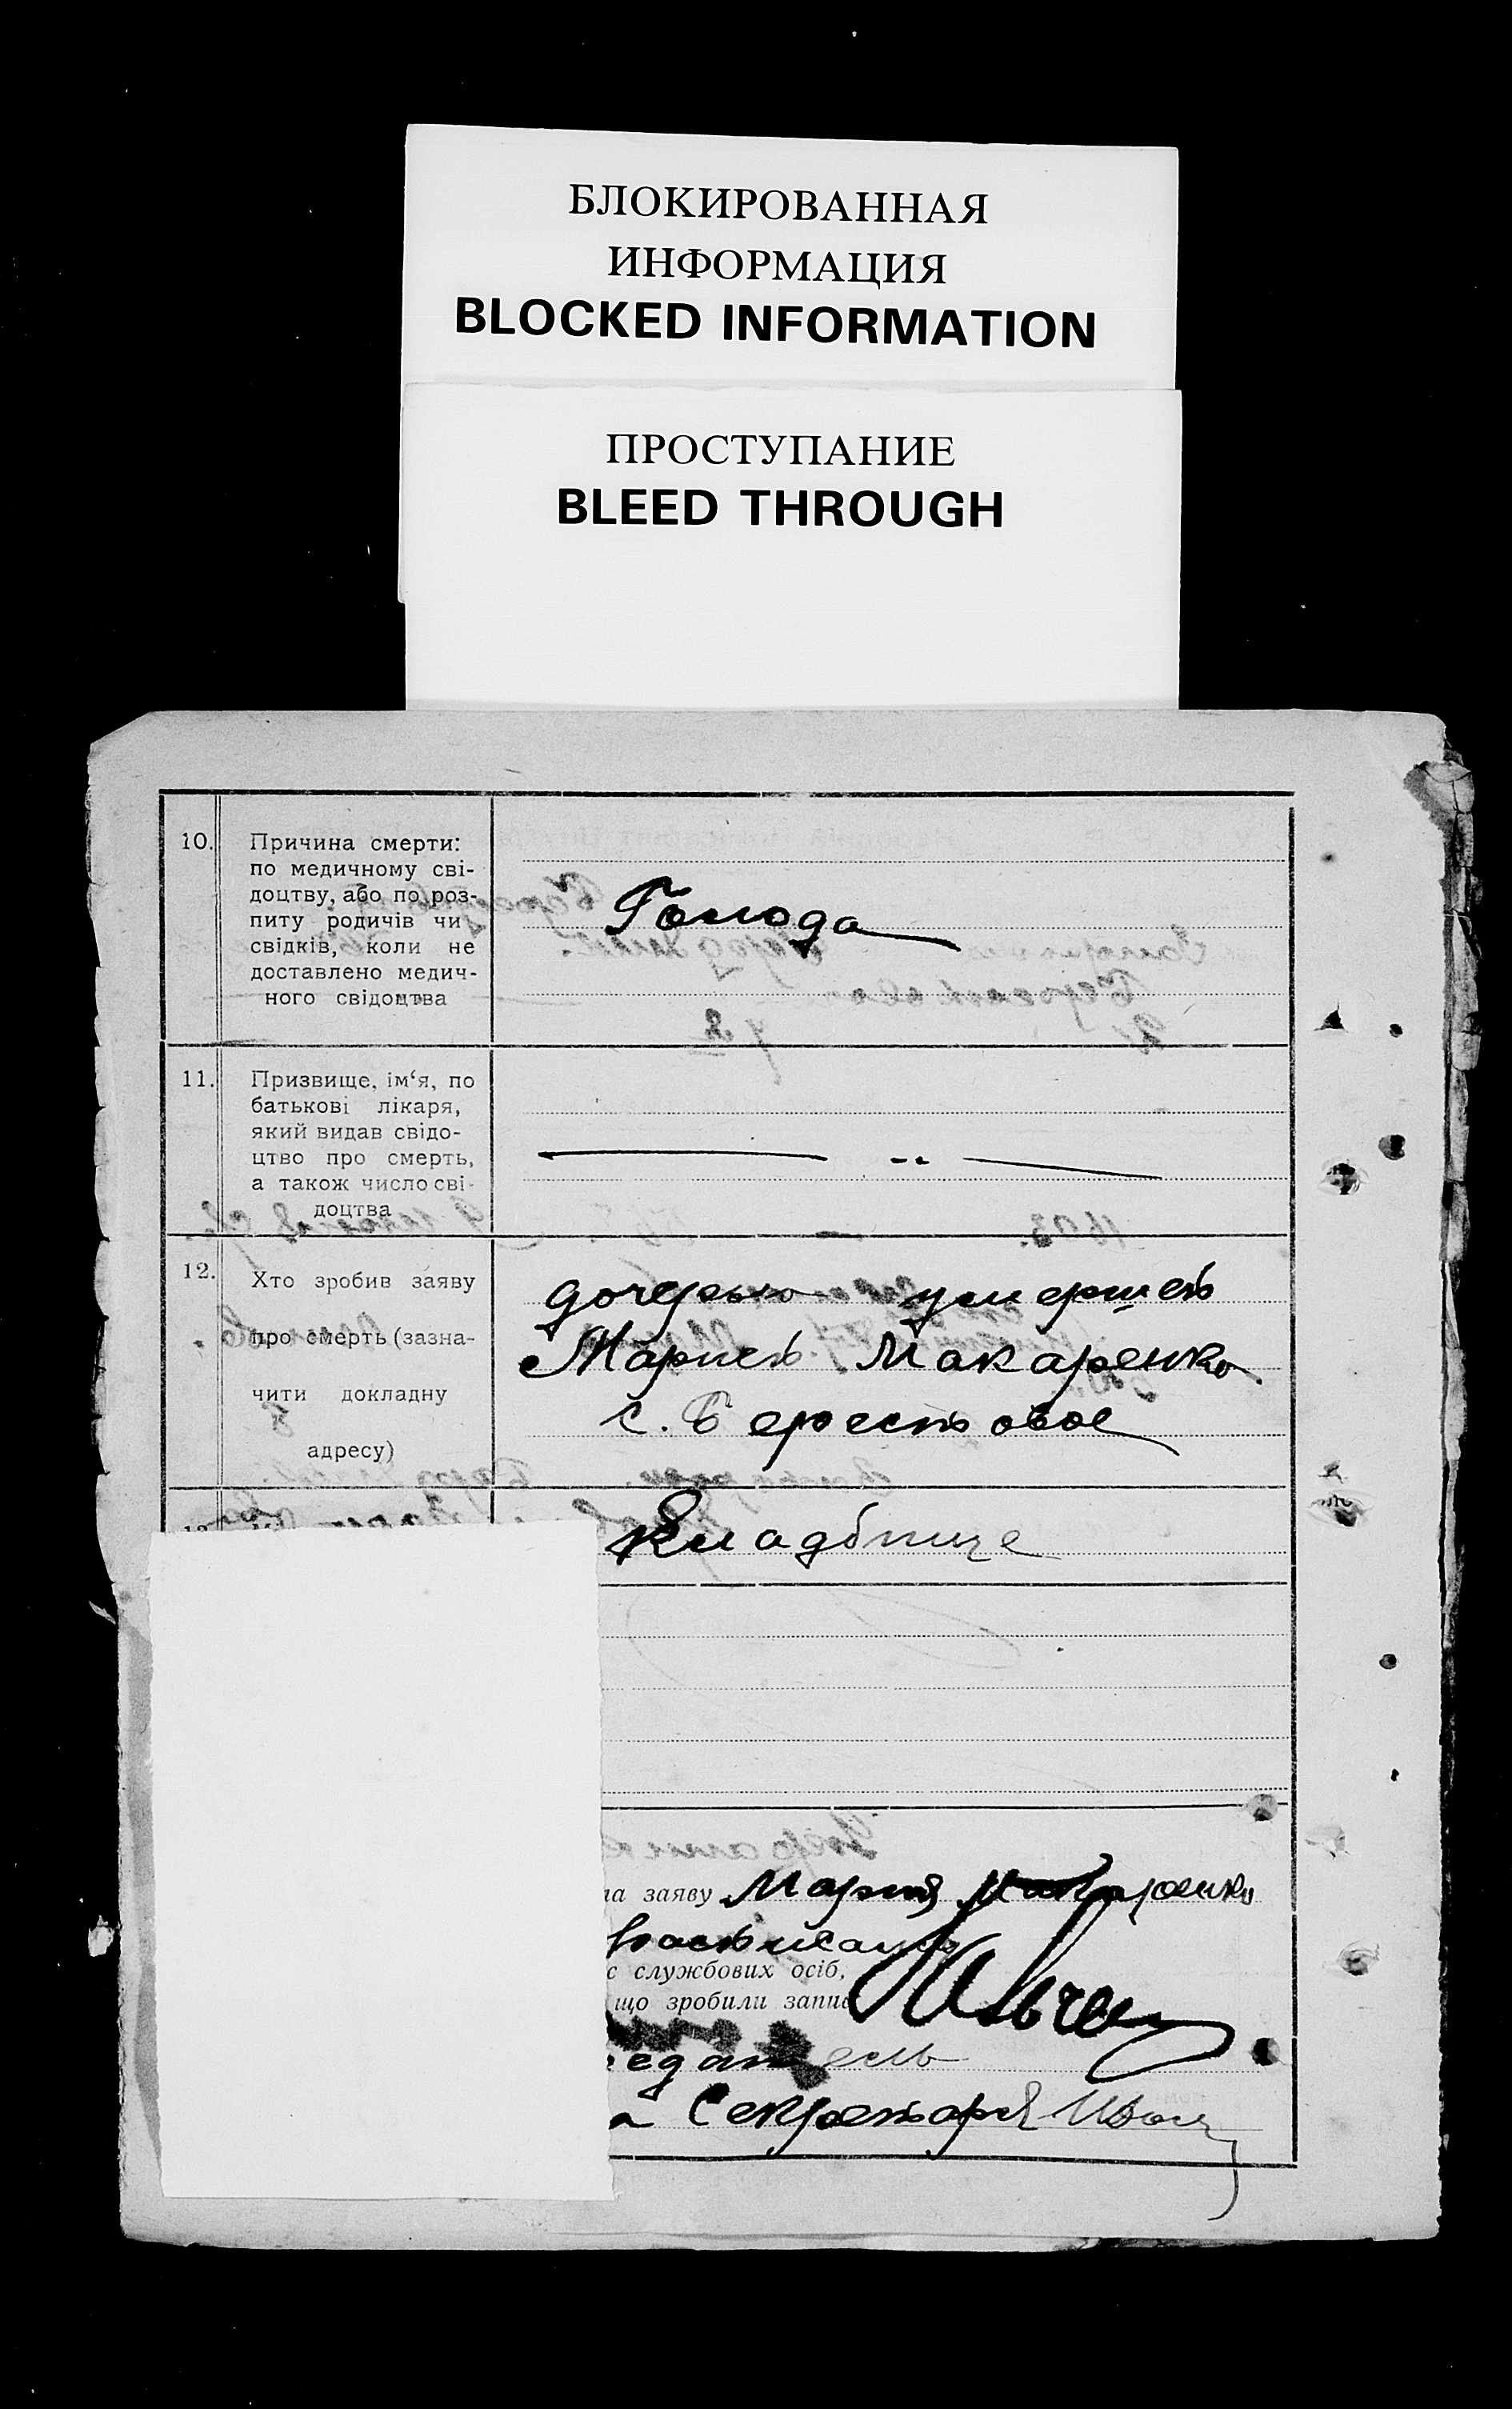 БЛОКИРОВАННАЯ
ИНФОРМАЦИЯ
BLOCKED INFORMATION
ПРОСТУПАНИЕ
BLEED THROUGH
10. Причина смерти:
по медичному сві-
доцтву, або по роз-
питу родичів чи
свідків, коли не
доставлено медич-
ного свідоцтва
Голода
11. Призвище, ім‘я, по
батькові лікаря,
який видав свідо-
цтво про смерть,
а також число сві-
доцтва
12. Хто зробив заяву
про смерть (зазна-
чити докладну
адресу)
дочерью умершей
Марией Макаренко
с. Берестовое
Кладбище
на заяву Мария Макаренко
с службових осіб,
що зробили запис
Секретаря